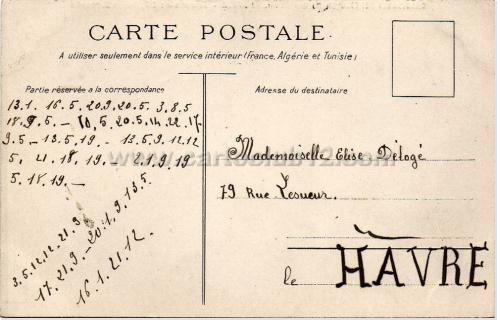 CARTE POSTALE
A utiliser seulement dans le service intérieur (France, Algérie et Tunisie)
Partie réservée a la correspondance
13.1. 16.5.20.9.20.5. 3.8.5
18.9.5. – 10,5 20.5.14.22.17-
9.5 – 13.5.19 – 13.5.9.12.12
5. 21.18.19. – 2.1.9.19
5.18.19 –
3.5.12.12.21.9.
17.21.9. – 20.1.9.13.5.
16.1.21.12.
Adresse du destinataire
Mademoiselle Elise Délogé
79 Rue Lesueur.
le HAVRE
www.cartoclub12.com